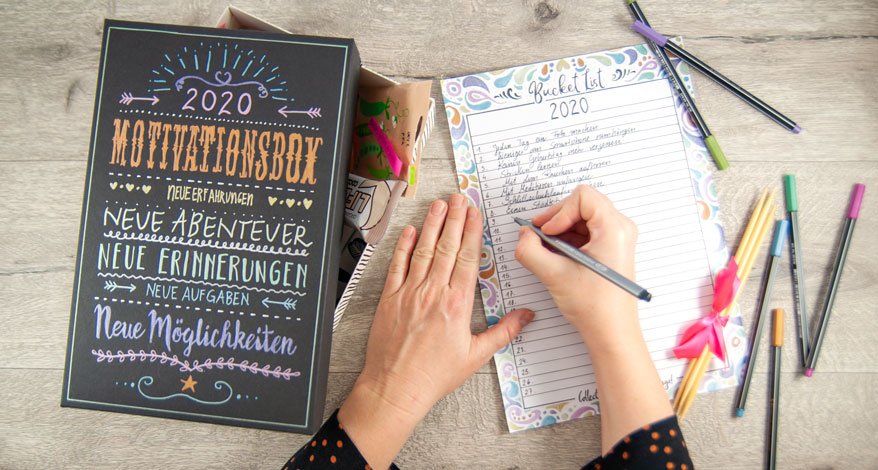 2020
MOTIVATIONSBOX
NEUE ERFAHRUNGEN
NEUE ABENTEUER
NEUE ERINNERUNGEN
NEUE AUFGABEN
Neue Möglichkeiten
Bucket List
2020
1 Jeden Tag ein Foto machen
2 Weniger am Smartphone rumhängen
3 Keinen Geburtstag mehr vergessen
4 Stricken lernen
5 Mit dem Rauchen aufhören
6 Mit Meditieren anfangen
7
8 Einen
9
10
11
12
13
14
15
16
17
18
19
20
21
22
23
24
25
26
27
Collect